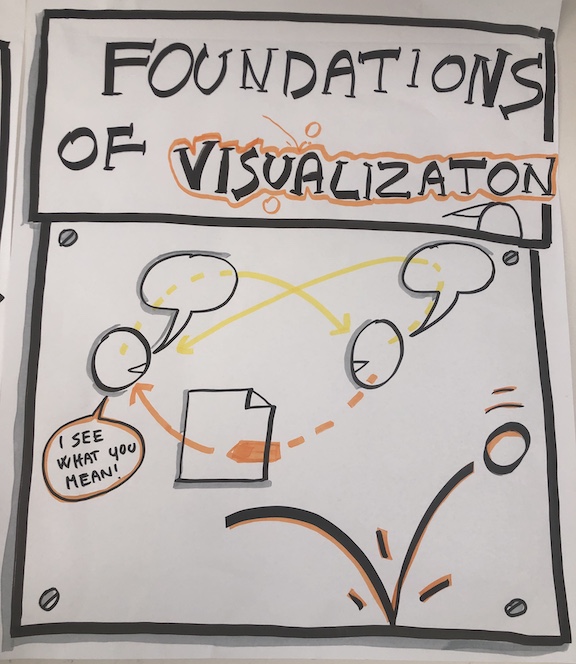 FOUNDATIONS
OF VISUALIZATON
I SEE
WHAT YOU
MEAN!